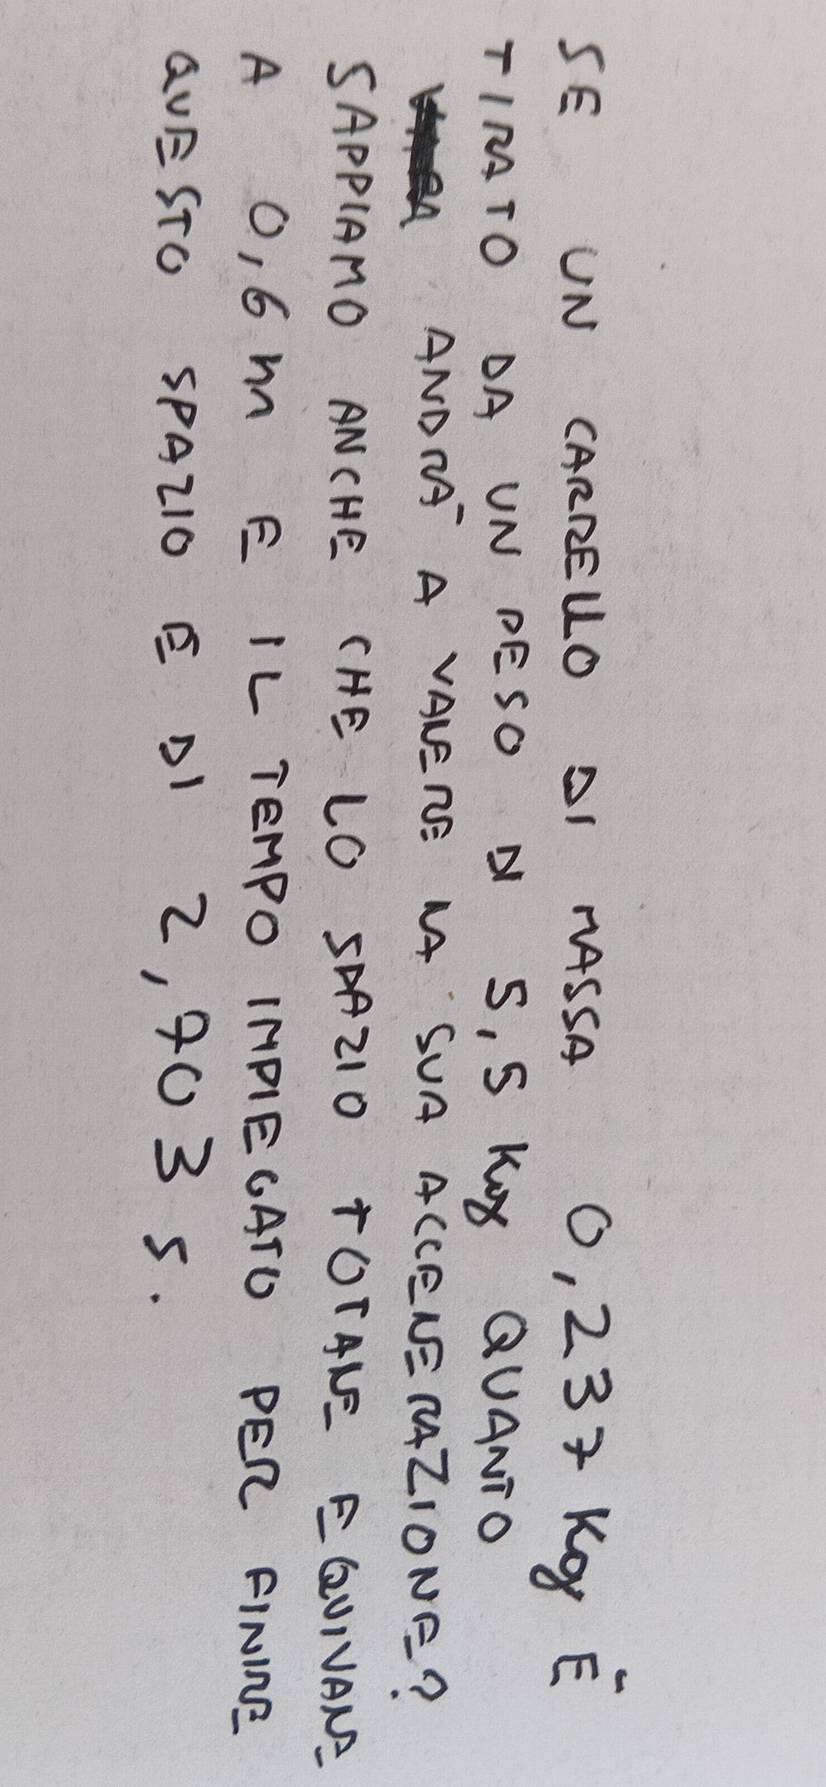 SE UN CARRELLO DI MASSA 0,237 Kg È
TIRATO DA UN PESO DI 5,5 Kg QUANTO
ANDRÀ A VALERE LA SUA ACCELERAZIONE?
SAPPIAMO ANCHE CHE LO SPAZIO TOTALE EQUIVALE
A 0,6 m E IL TEMPO IMPIEGATO PER FINIRE
QUESTO SPAZIO È DI 2,703 s.